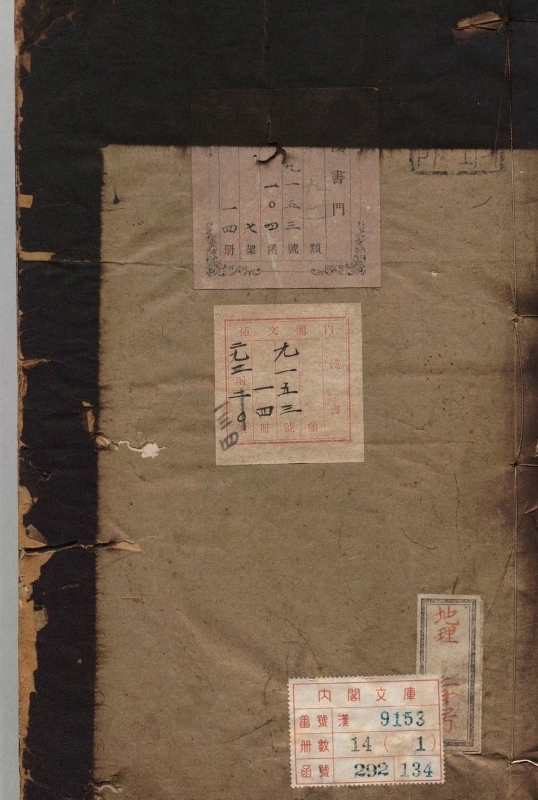 書門
類
九一五三號
一〇四函
架
一四冊
內閣文庫
漢書
九一五三
類號冊
一四
二九二函
地理
內閣文庫
番號 漢 9153
冊數 14 ( 1 )
函號 292 134